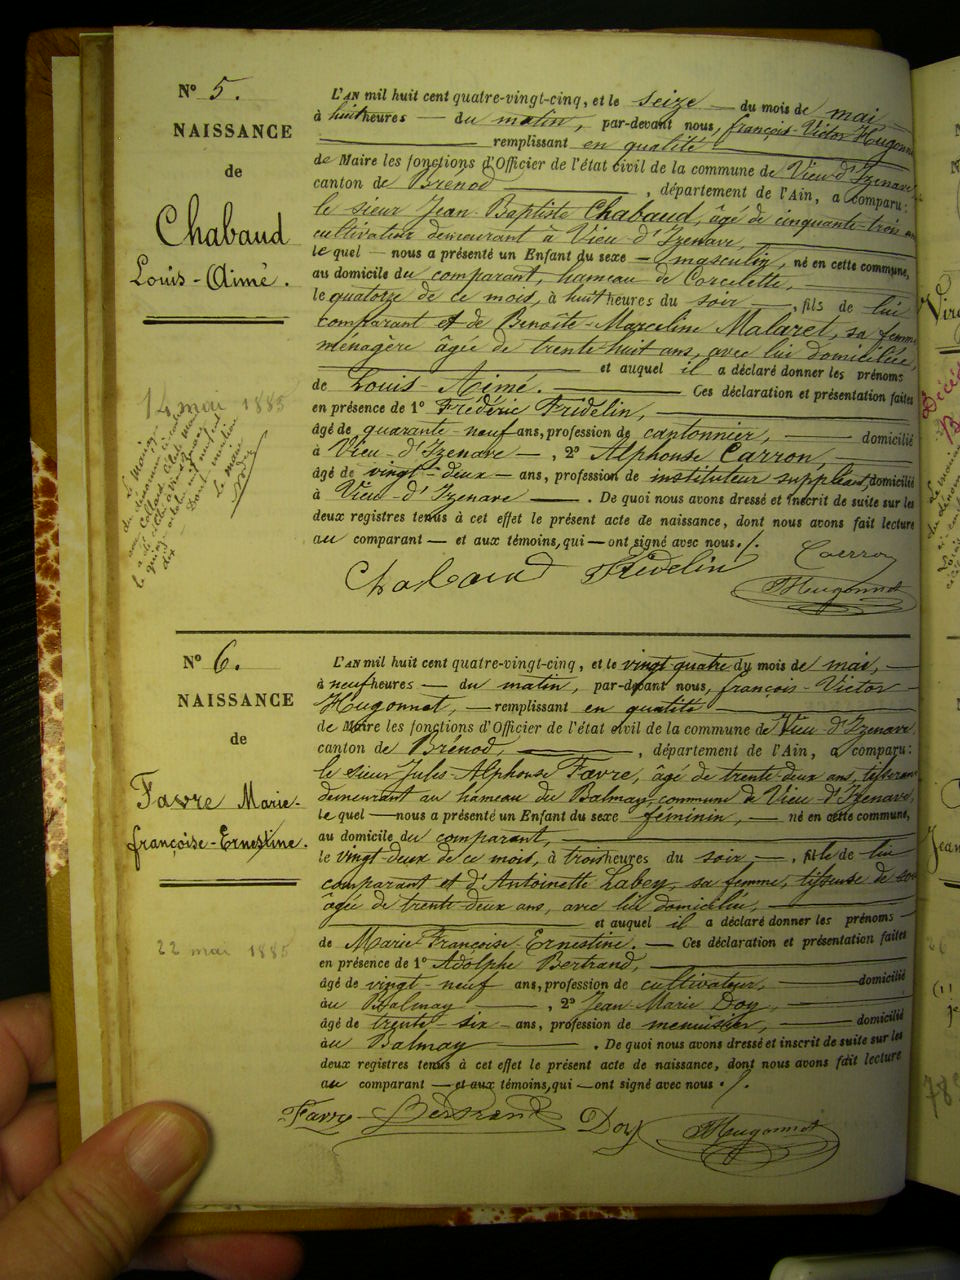 N° 5.
NAISSANCE
de
Chabaud
Louis-Aimé.
14 mai 1885
L'AN mil huit cent quatre-vingt-cinq, et le seize du mois de mai
à huit heures du matin, par-devant nous, françois-Victor Hugonnet
remplissant en qualité
de Maire les fonctions d'Officier de l'état civil de la commune de Vieu d'Izenave
canton de Brénod, département de l'Ain, a comparu:
le sieur Jean-Baptiste Chabaud, âgé de cinquante-trois ans
cultivateur demeurant à Vieu-d'Izenave,
le quel nous a présenté un Enfant du sexe masculin, né en cette commune,
au domicile du comparant, hameau de Corcelette,
le quatorze de ce mois, à huit heures du soir, fils de lui
comparant et de Benoîte-Marceline Malaret, sa femme
ménagère âgée de trente-huit ans, avec lui domiciliée,
et auquel il a déclaré donner les prénoms
de Louis-Aimé. Ces déclaration et présentation faites
en présence de 1° Frédéric Fridelin,
âgé de quarante-neuf ans, profession de cantonnier, domicilié
à Vieu-d'Izenave, 2° Alphonse Carron,
âgé de vingt-deux ans, profession de instituteur suppléant, domicilié
à Vieu-d'Izenave. De quoi nous avons dressé et inscrit de suite sur les
deux registres tenus à cet effet le présent acte de naissance, dont nous avons fait lecture
au comparant et aux témoins, qui ont signé avec nous./.
Chabaud Fridelin Carron
Hugonnet
N° 6.
NAISSANCE
de
Favre Marie-
françoise-Ernestine.
22 mai 1885
L'AN mil huit cent quatre-vingt-cinq, et le vingt quatre du mois de mai,
à neuf heures du matin, par-devant nous, françois-Victor
Hugonnet, remplissant en qualité
de Maire les fonctions d'Officier de l'état civil de la commune de Vieu-d'Izenave
canton de Brénod, département de l'Ain, a comparu:
le sieur Jules-Alphonse Favre, âgé de trente-deux ans, tisserand
demeurant au hameau du Balmay, commune de Vieu-d'Izenave,
le quel nous a présenté un Enfant du sexe féminin, né en cette commune,
au domicile du comparant,
le vingt-deux de ce mois, à trois heures du soir, fille de lui
comparant et d'Antoinette Labey, sa femme, tisseuse de soie
âgée de trente-deux ans, avec lui domicilié,
et auquel il a déclaré donner les prénoms
de Marie-Françoise-Ernestine. Ces déclaration et présentation faites
en présence de 1° Adolphe Bertrand,
âgé de vingt-neuf ans, profession de cultivateur, domicilié
au Balmay, 2° Jean-Marie Doy,
âgé de trente-six ans, profession de menuisier, domicilié
au Balmay. De quoi nous avons dressé et inscrit de suite sur les
deux registres tenus à cet effet le présent acte de naissance, dont nous avons fait lecture
au comparant et aux témoins, qui ont signé avec nous./.
Favre Bertrand Doy Hugonnet